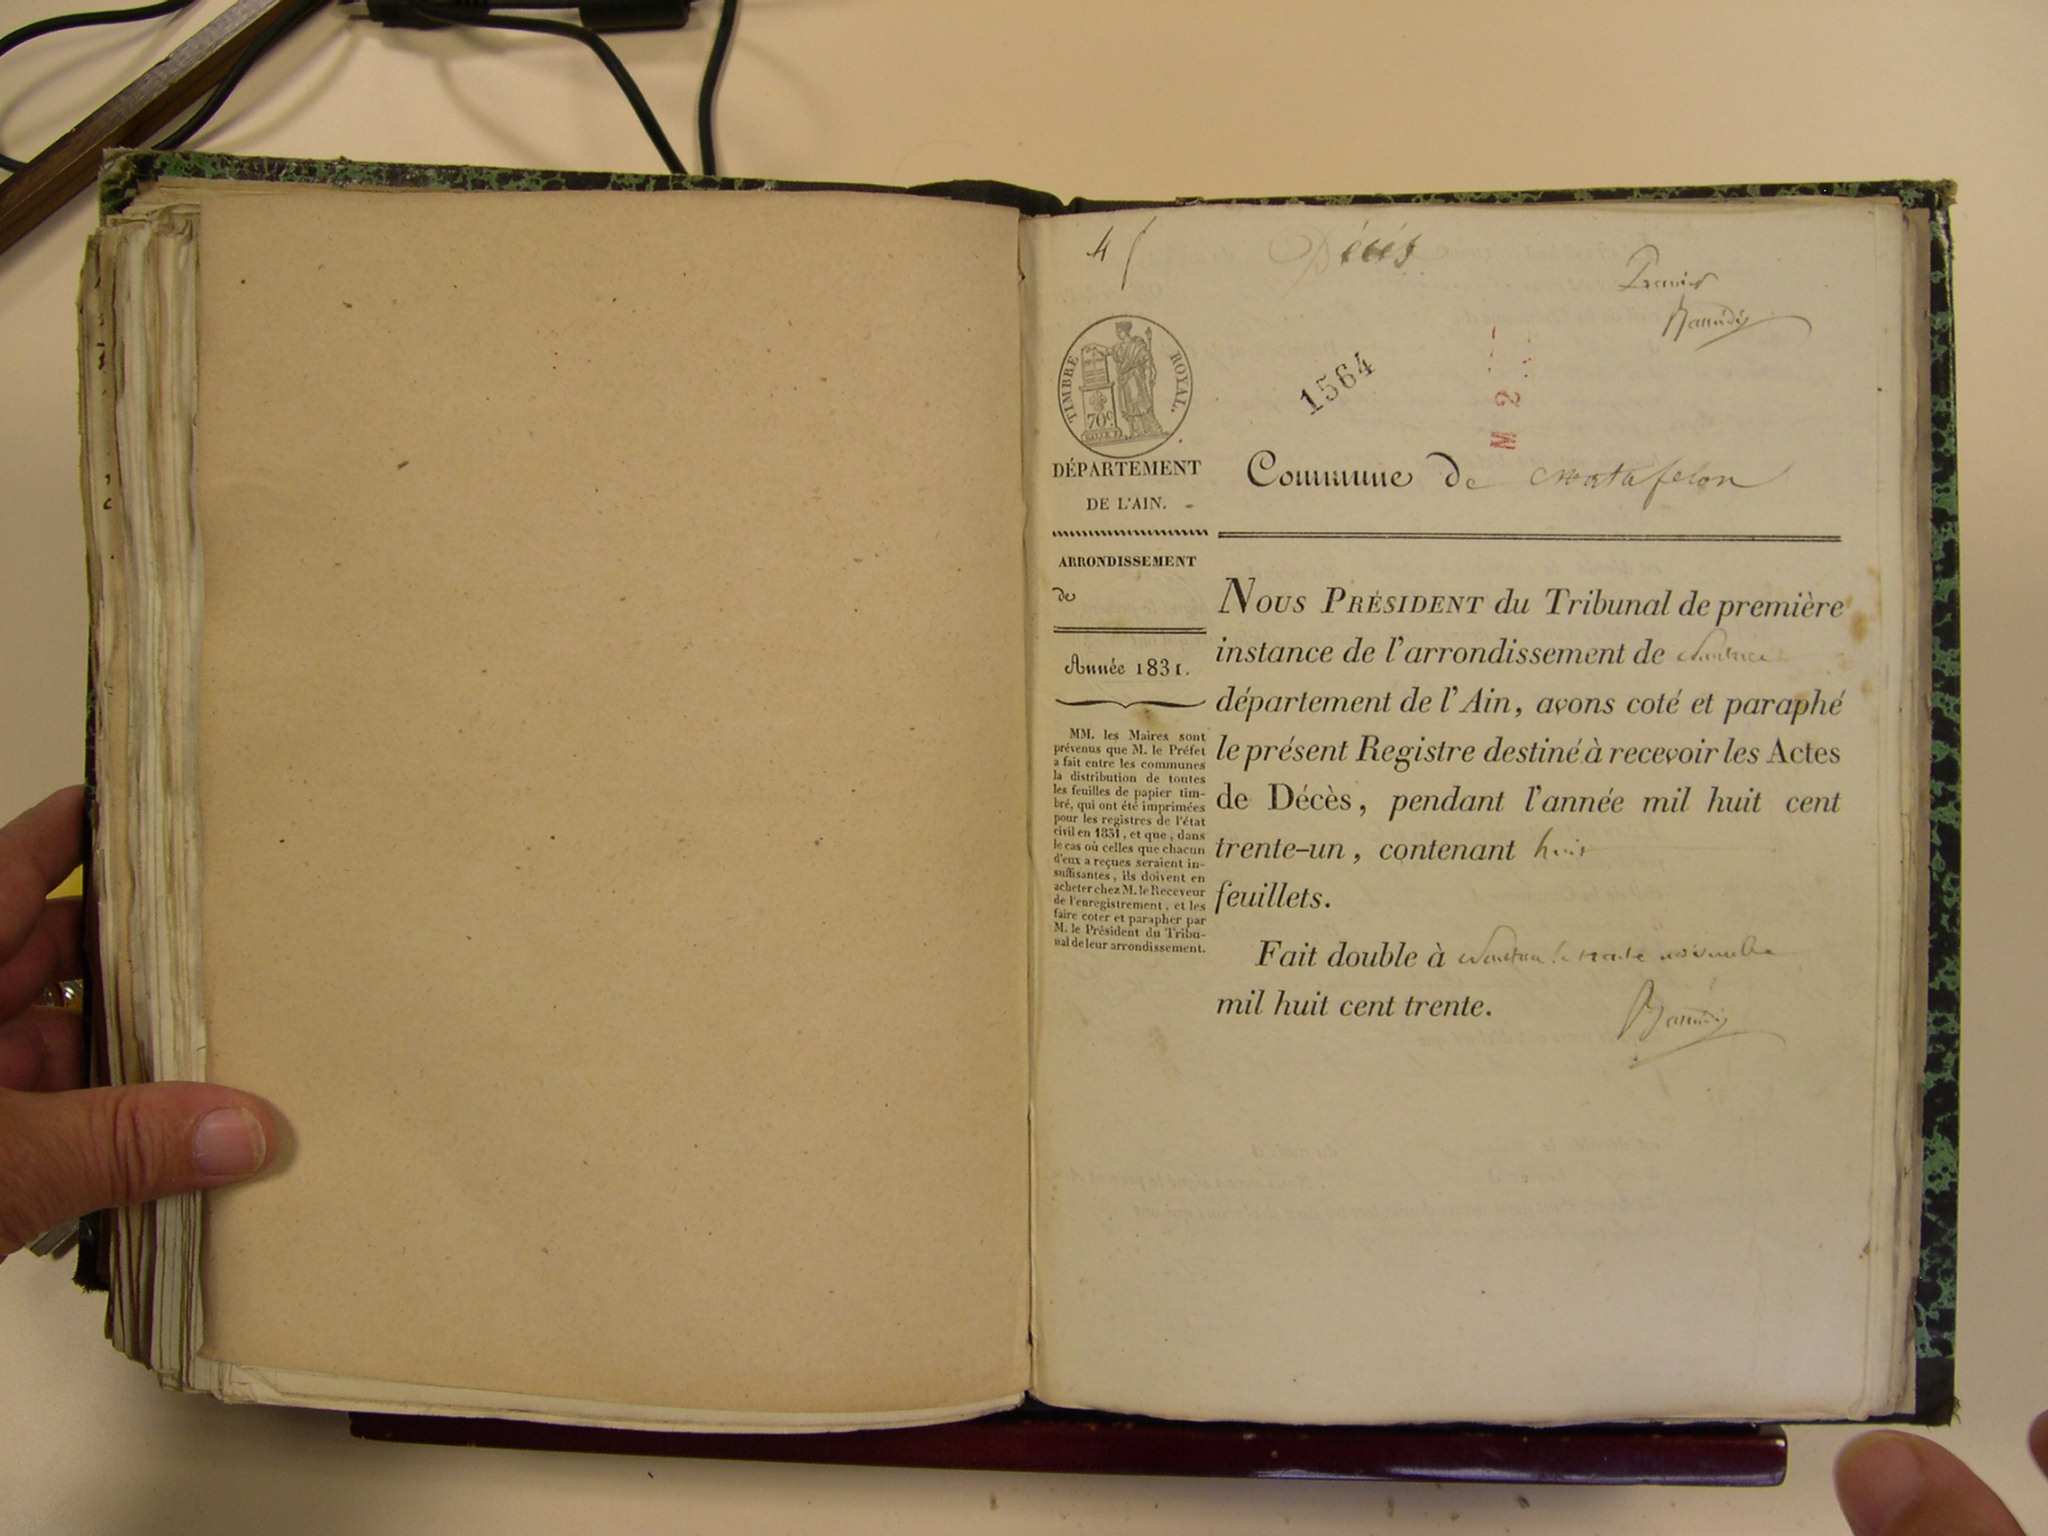 4
Décès
Premier
TIMBRE ROYAL.
70 c
1564
M 2
DÉPARTEMENT
DE L'AIN.
Commune de Matafelon
ARRONDISSEMENT
de
Année 1831.
MM. les Maires sont
prévenus que M. le Préfet
a fait entre les communes
la distribution de toutes
les feuilles de papier tim-
bré, qui ont été imprimées
pour les registres de l'état
civil en 1831, et que, dans
le cas où celles que chacun
d'eux a reçues seraient in-
suffisantes, ils doivent en
acheter chez M. le Receveur
de l'enregistrement, et les
faire coter et parapher par
M. le Président du Tribu-
nal de leur arrondissement.
NOUS PRÉSIDENT du Tribunal de première
instance de l'arrondissement de Nantua
département de l'Ain, avons coté et paraphé
le présent Registre destiné à recevoir les Actes
de Décès, pendant l'année mil huit cent
trente-un, contenant huit
feuillets.
Fait double à Nantua le trente novembre
mil huit cent trente.